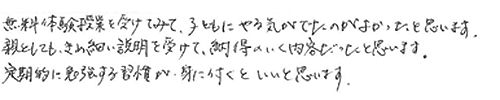 無料体験授業を受けてみて、子どもにやる気がでたのがよかったと思います。
親としても、きめ細い説明を受けて、納得のいく内容だったと思います。
定期的に勉強する習慣が身に付くといいと思います。